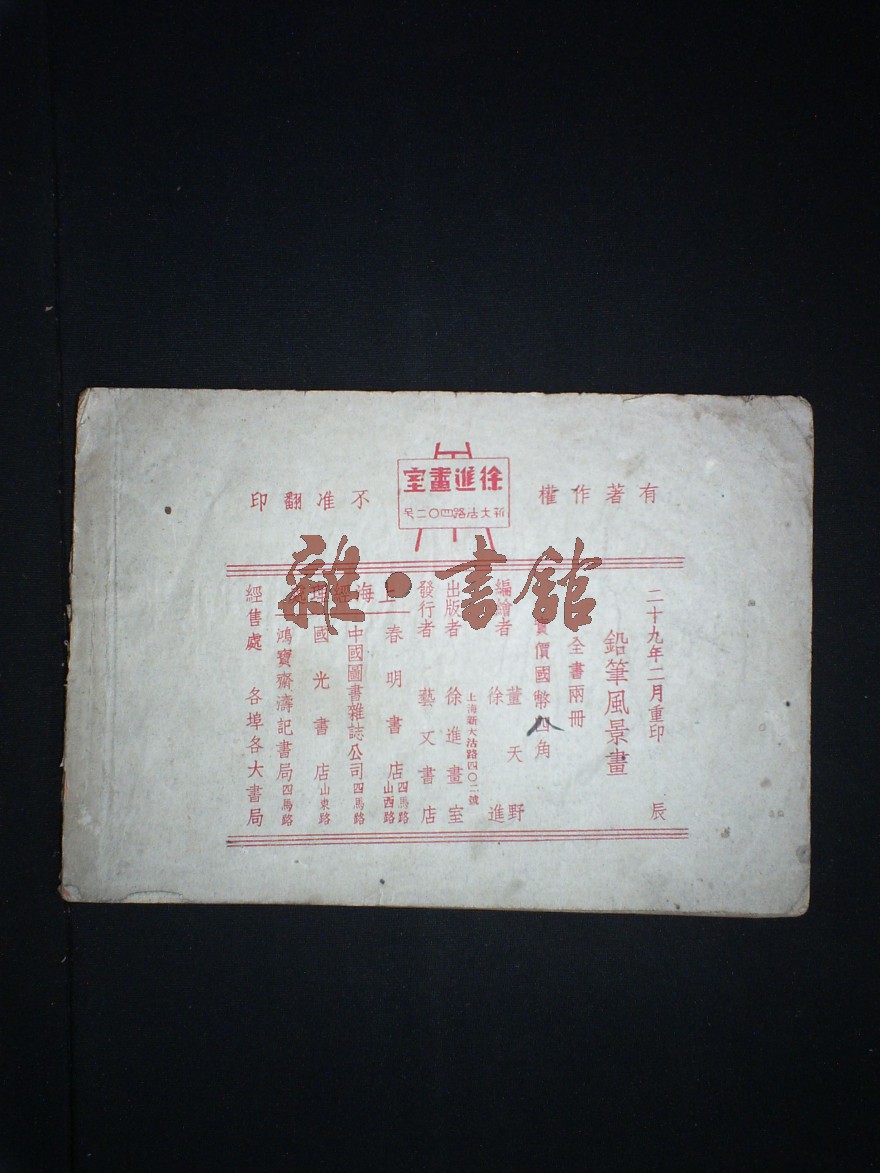 有著作權
不准翻印
徐進畫室
新大沽路四〇二号
二十九年二月重印 辰
鉛筆風景畫
全書兩冊
實價國幣四角
編繪者 董天野
徐進
上海新大沽路四〇二號
出版者 徐進畫室
發行者 藝文書店
上海經理處
春明書店 四馬路 山西路
中國圖書雜誌公司 四馬路
國光書店 山東路
鴻寶齋濤記書局 四馬路
經售處 各埠各大書局
雜·書館